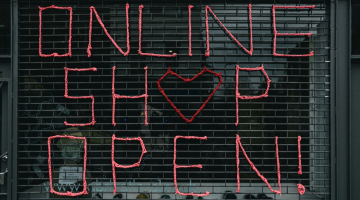 ONLINE
SH♥P
OPEN!